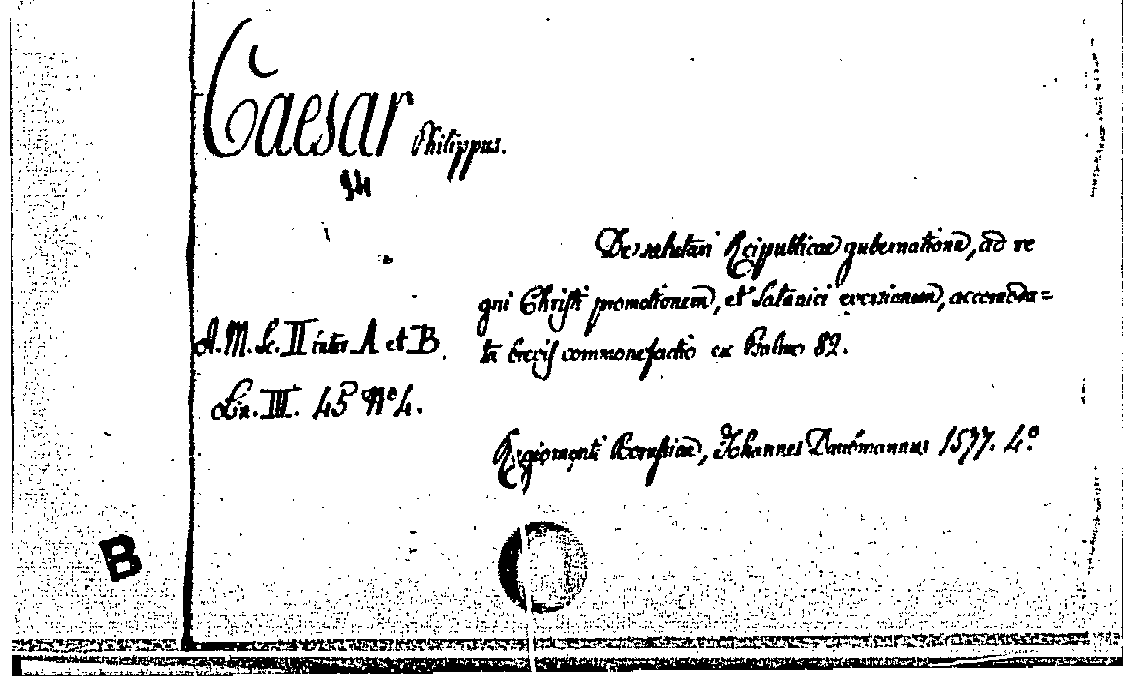 Caesar Philippus.
94
De salutari Reipublicae gubernatione, ad re
gni Christi promotionem, et Satanici eversionem, accomoda=
ta brevis commonefactio ex Psalmo 82.
A. M. Sc. II inter A et B.
Lin. III. 45 No 4.
Regiomonti Borussiae, Johannes Daubmannus 1577. 4o
B